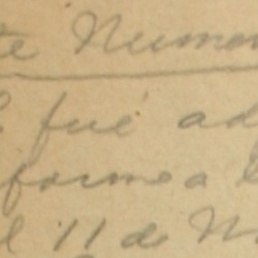 te Numer
fué ad
forme a
l 11 de M